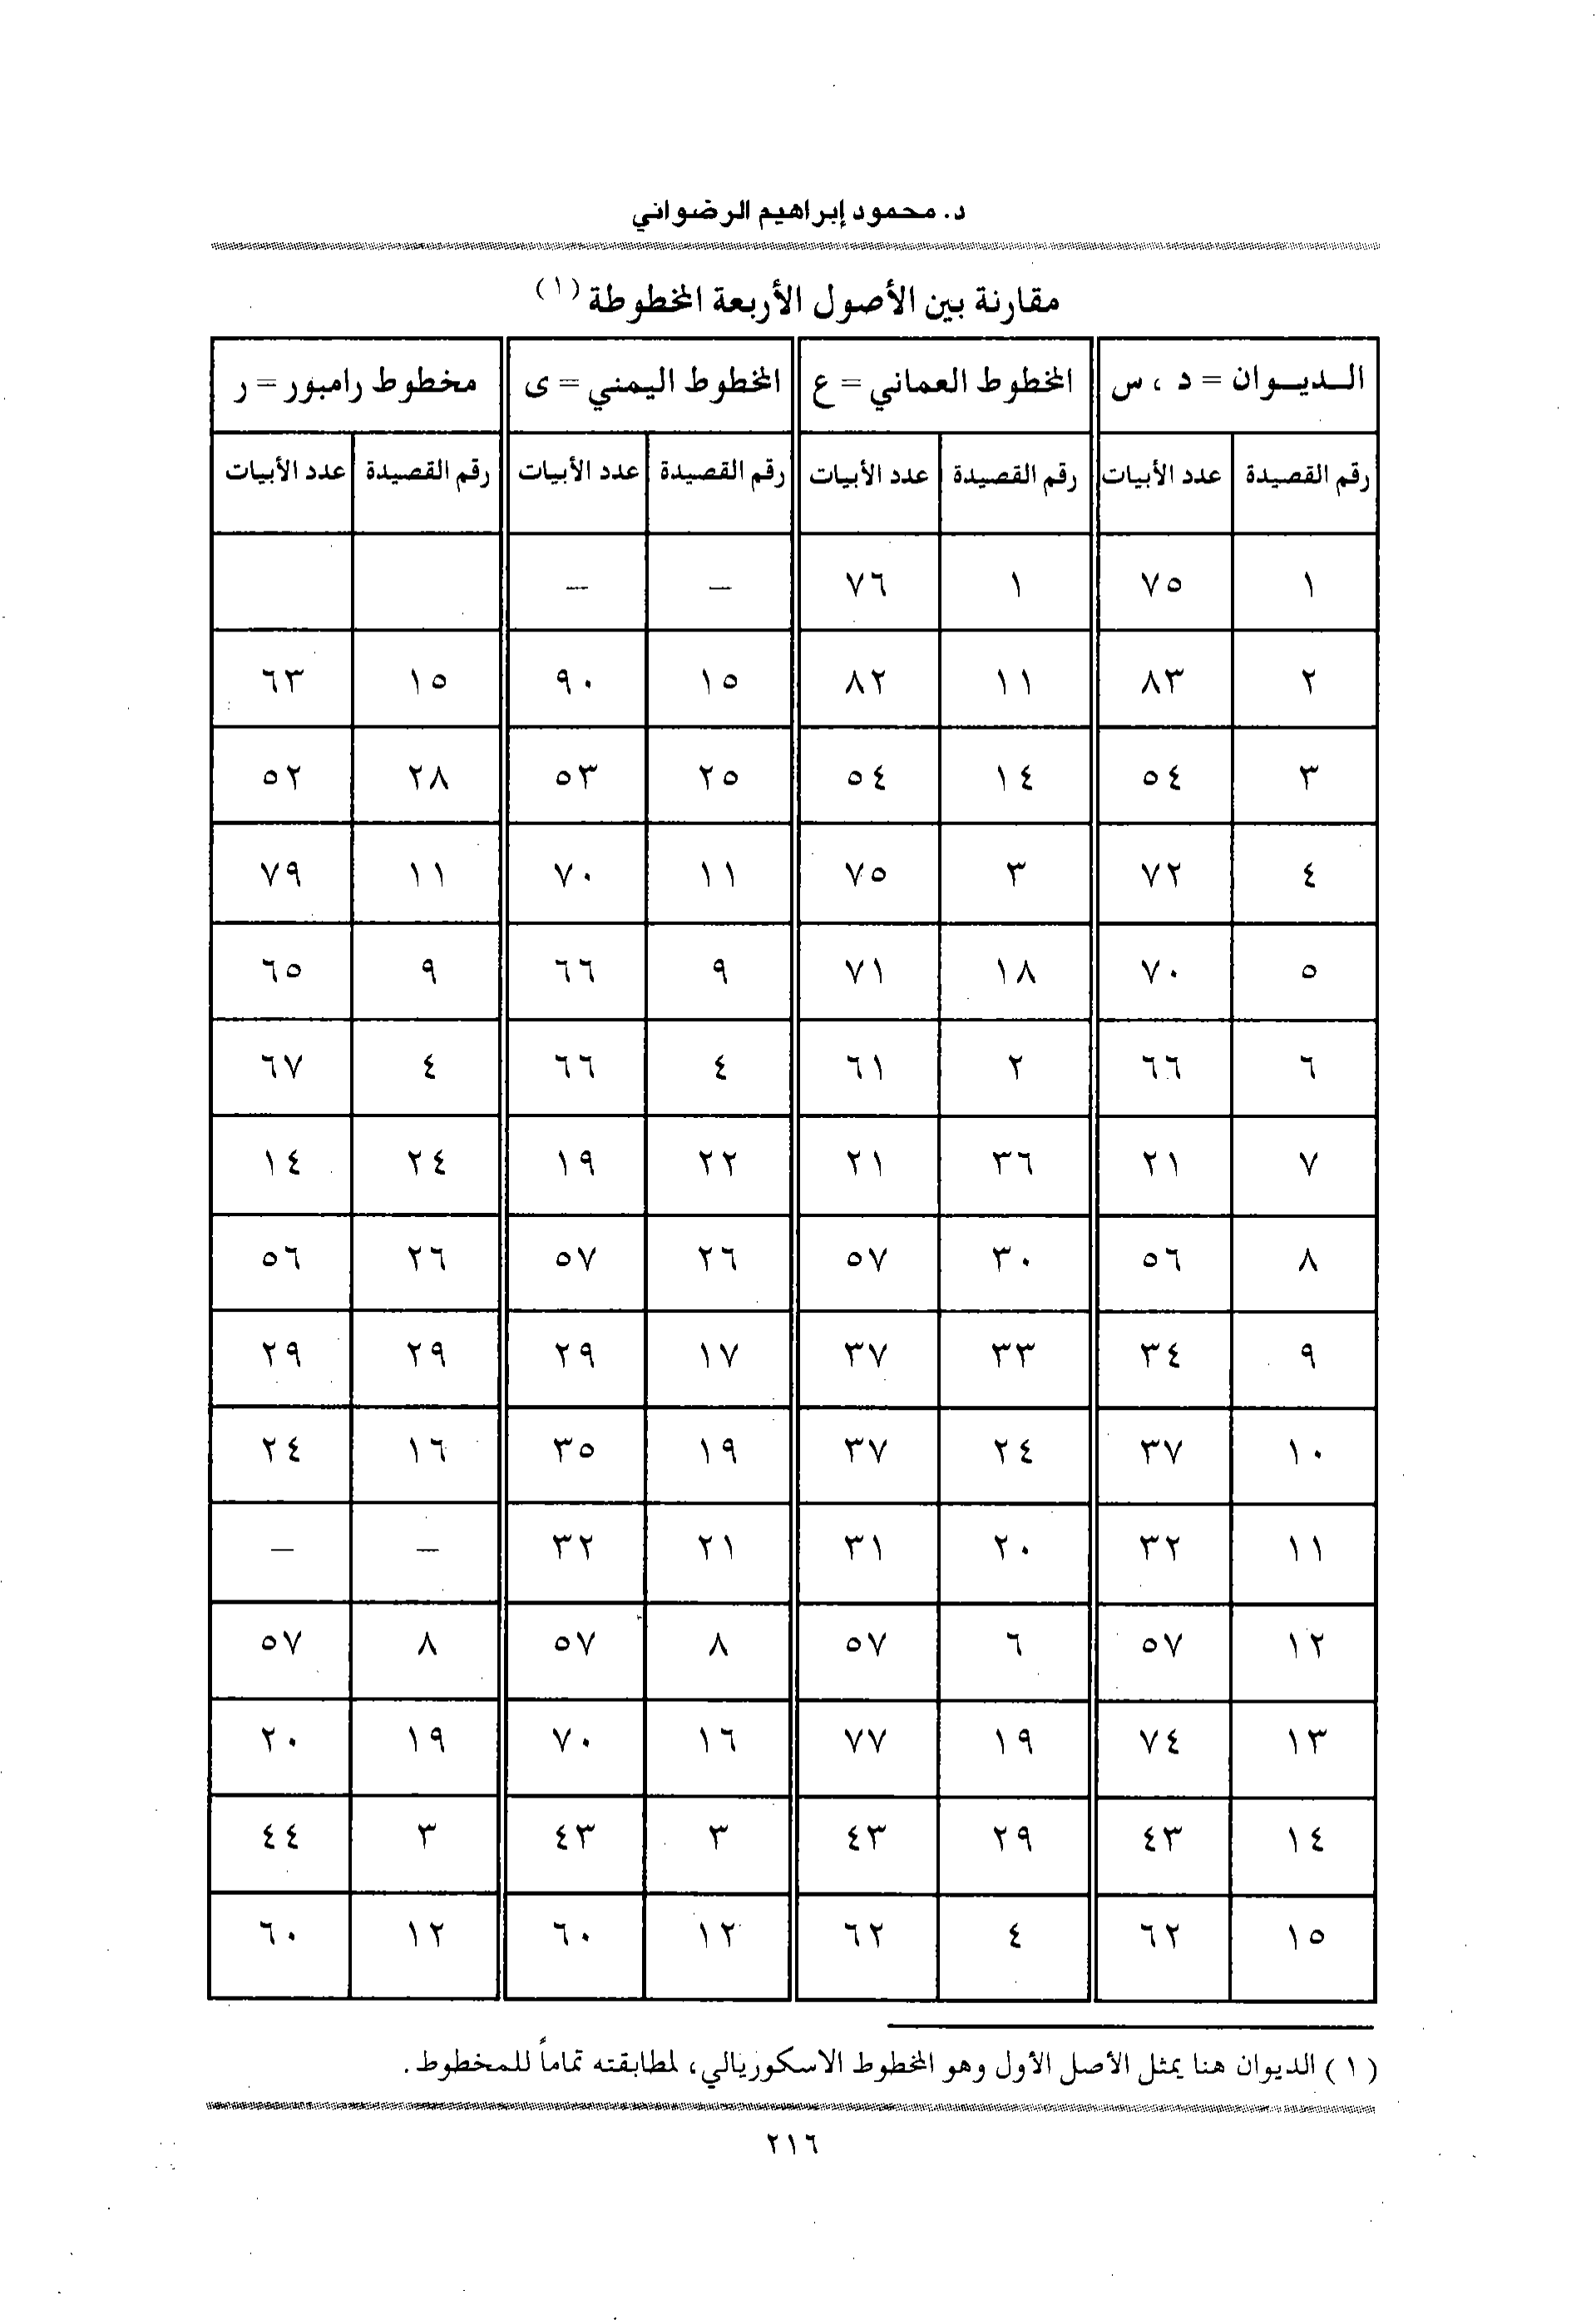 د. محمود إبراهيم الرضواني
مقارنة بين الأصول الأربعة المخطوطة (١)
الـديـوان = د ، س المخطوط العماني = ع المخطوط اليمني = ى مخطوط رامبور = ر
رقم القصيدة عدد الأبيات رقم القصيدة عدد الأبيات رقم القصيدة عدد الأبيات رقم القصيدة عدد الأبيات
١ ٧٥ ١ ٧٦ – –
٢ ٨٣ ١١ ٨٢ ١٥ ٩٠ ١٥ ٦٣
٣ ٥٤ ١٤ ٥٤ ٢٥ ٥٣ ٢٨ ٥٢
٤ ٧٢ ٣ ٧٥ ١١ ٧٠ ١١ ٧٩
٥ ٧٠ ١٨ ٧١ ٩ ٦٦ ٩ ٦٥
٦ ٦٦ ٢ ٦١ ٤ ٦٦ ٤ ٦٧
٧ ٢١ ٣٦ ٢١ ٢٢ ١٩ ٢٤ ١٤
٨ ٥٦ ٣٠ ٥٧ ٢٦ ٥٧ ٢٦ ٥٦
٩ ٣٤ ٣٣ ٣٧ ١٧ ٢٩ ٢٩ ٢٩
١٠ ٣٧ ٢٤ ٣٧ ١٩ ٣٥ ١٦ ٢٤
١١ ٣٢ ٢٠ ٣١ ٢١ ٣٢ – –
١٢ ٥٧ ٦ ٥٧ ٨ ٥٧ ٨ ٥٧
١٣ ٧٤ ١٩ ٧٧ ١٦ ٧٠ ١٩ ٢٠
١٤ ٤٣ ٢٩ ٤٣ ٣ ٤٣ ٣ ٤٤
١٥ ٦٢ ٤ ٦٢ ١٢ ٦٠ ١٢ ٦٠
(١) الديوان هنا يمثل الأصل الأول وهو المخطوط الاسكوريالي، لمطابقته تماماً للمخطوط.
٢١٦